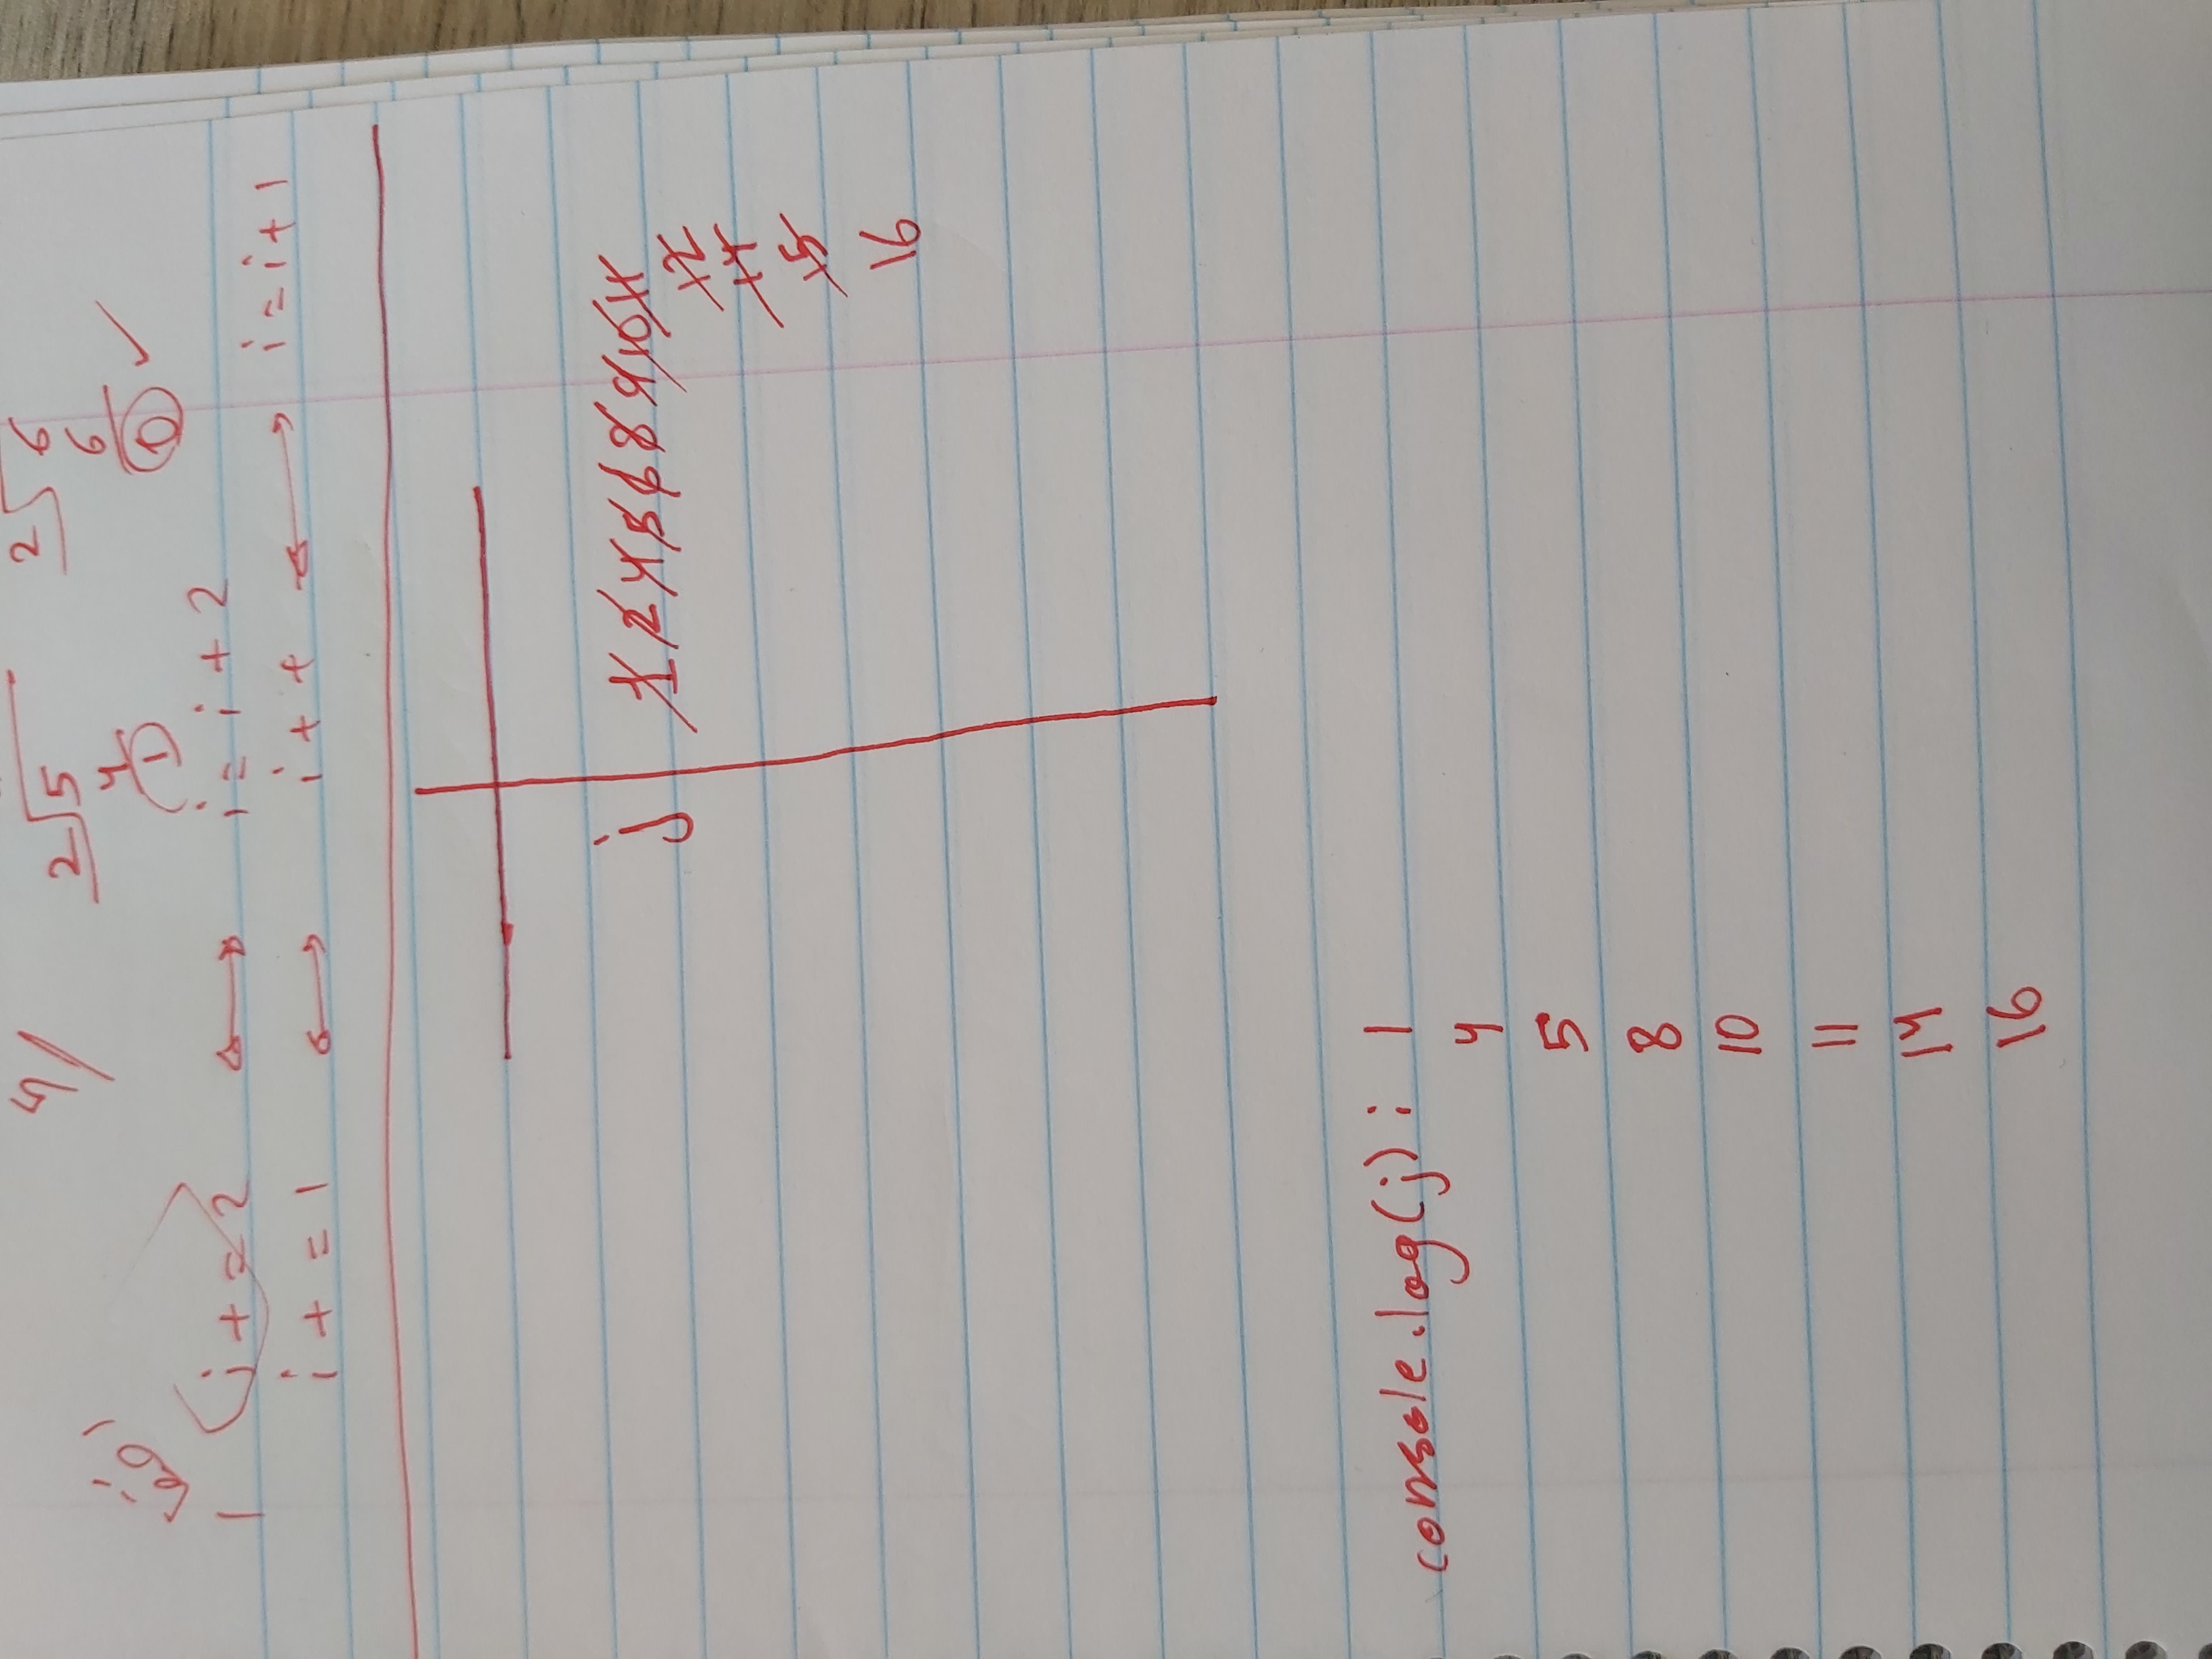 4/ 2√5 2√6
4 6
1 0 ✓
1 i += 2 ↔ i = i + 2
i += 1 ↔ i++ ↔ i = i + 1
j 1 2 4 5 6 8 9 10 11
12
14
15
16
console.log(j) : 1
4
5
8
10
11
14
16